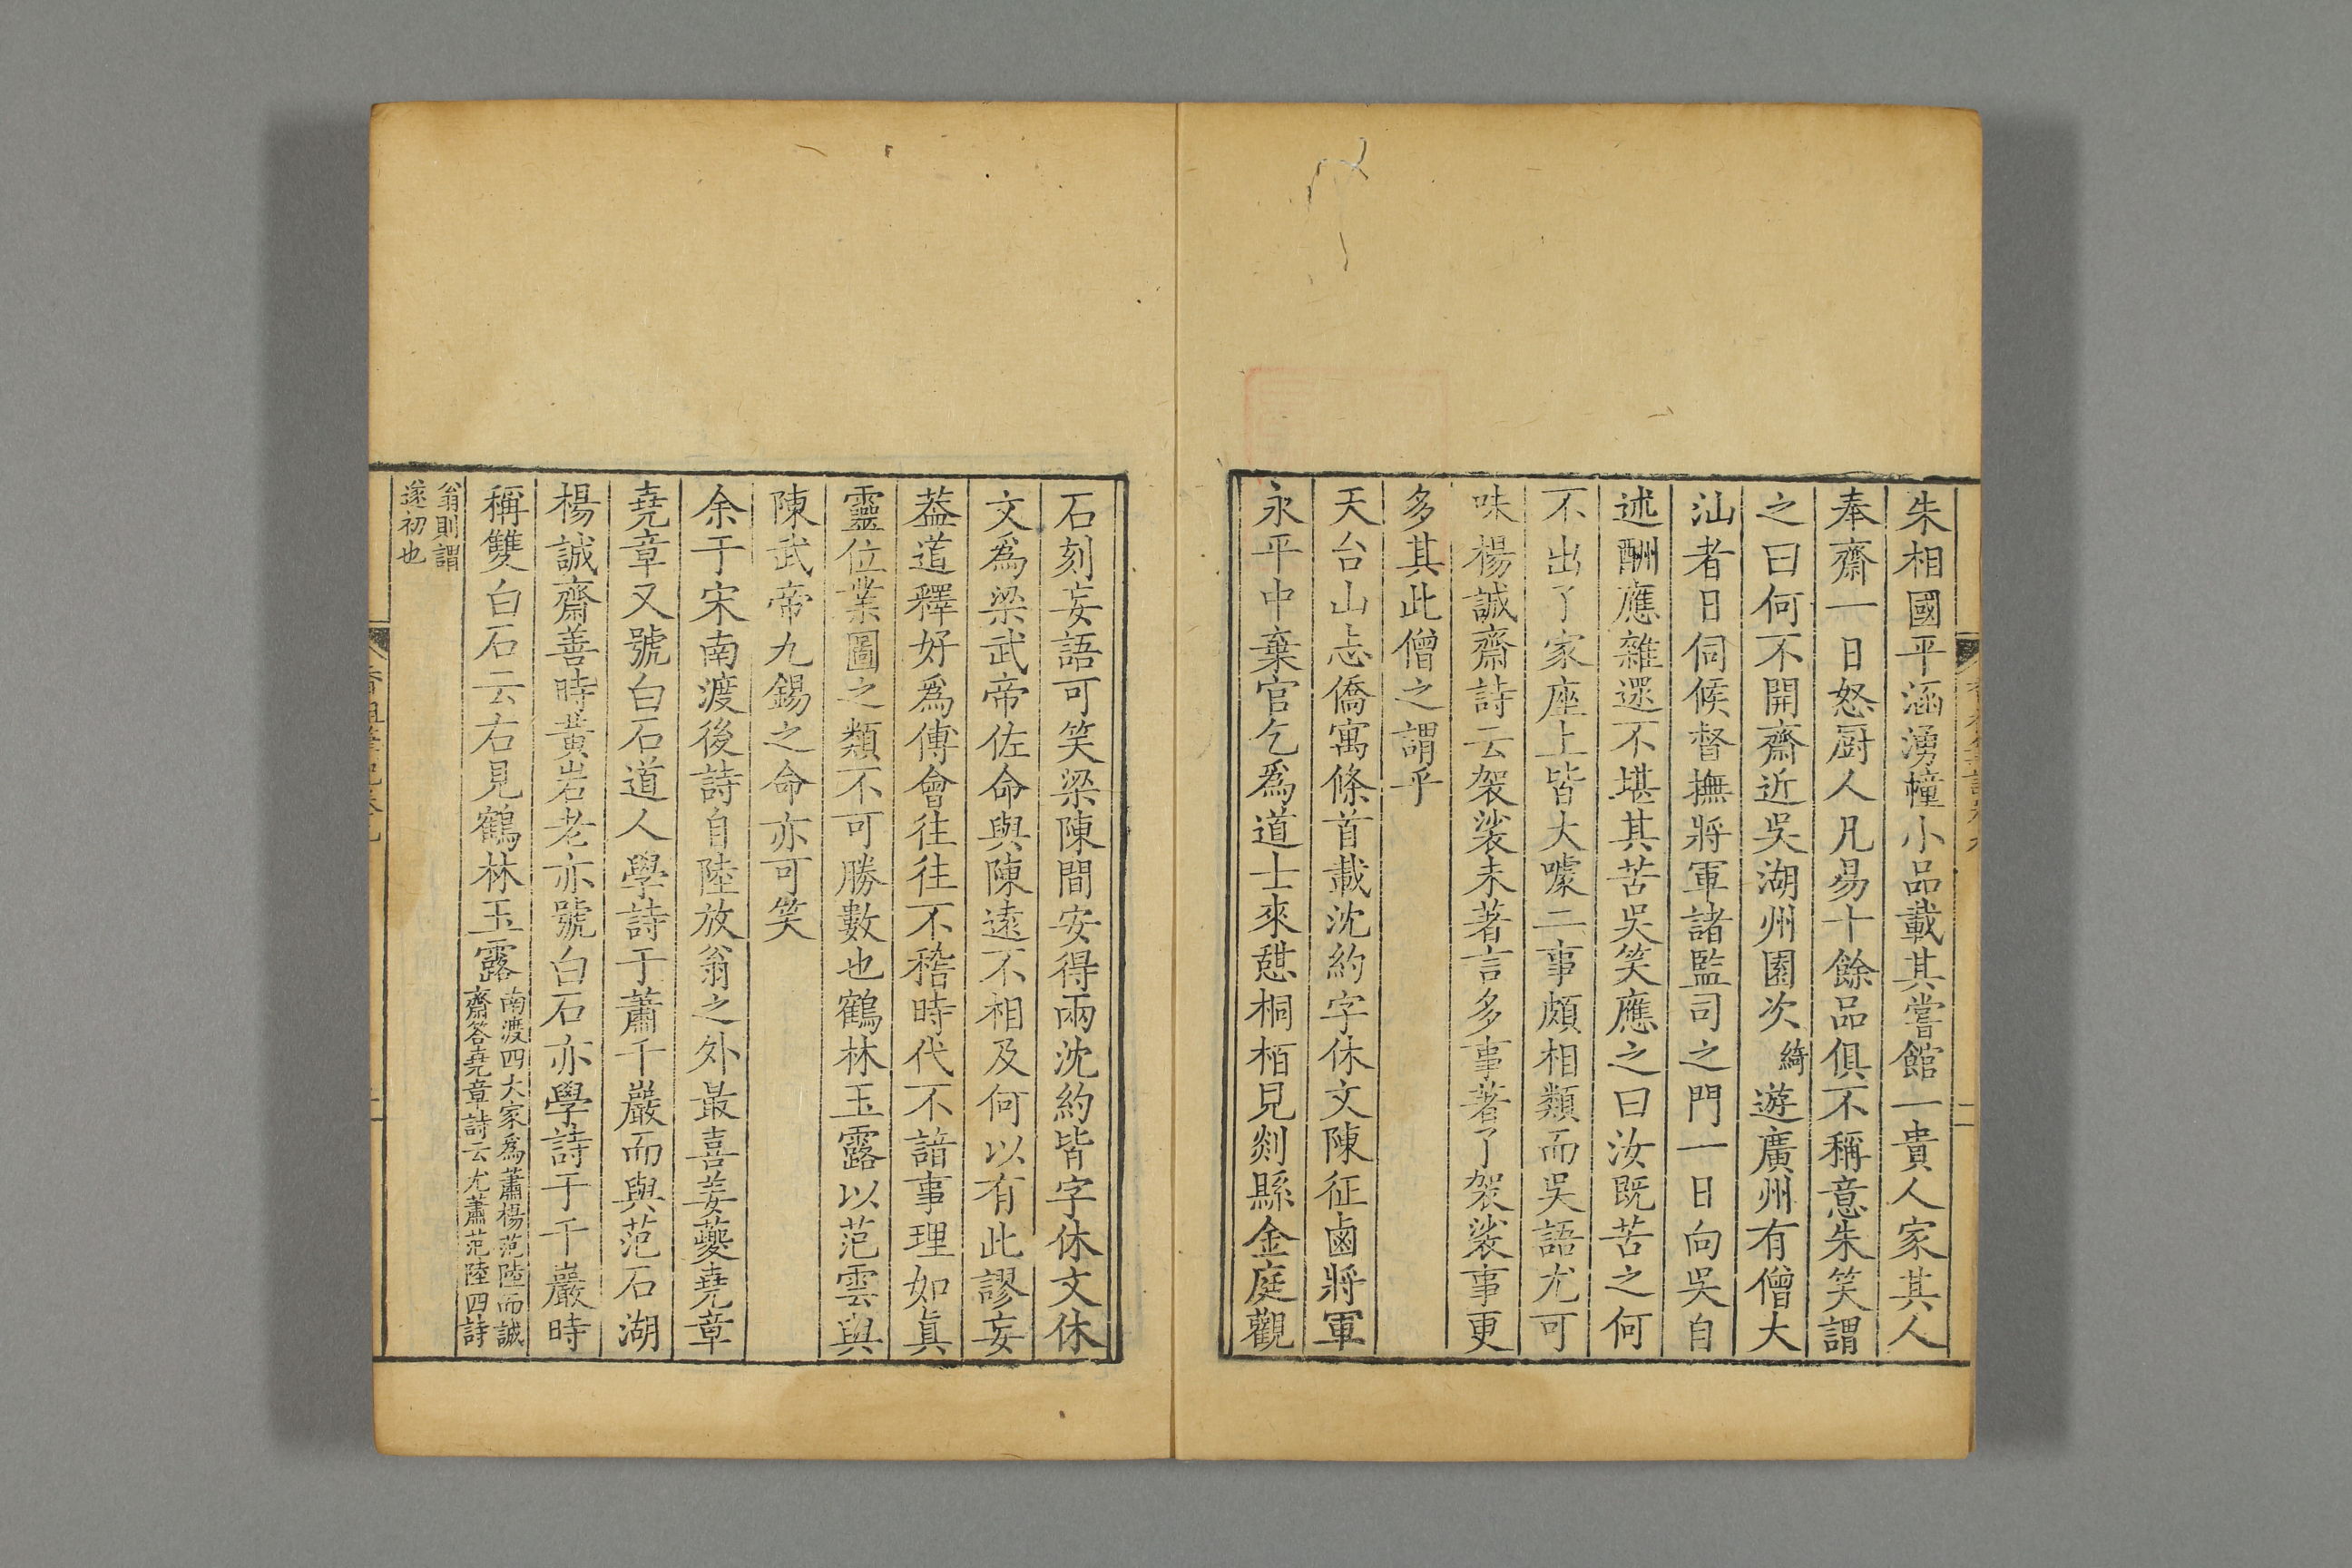 朱相國平涵湧幢小品載其嘗館一貴人家其人
奉齋一日怒厨人凡易十餘品俱不稱意朱笑謂
之曰何不開齋近吳湖州園次綺遊廣州有僧大
汕者日伺候督撫將軍諸監司之門一日向吳自
述酬應雜遝不堪其苦吳笑應之曰汝既苦之何
不出了家座上皆大噱二事頗相類而吳語尤可
味楊誠齋詩云袈裟未著言多事著了袈裟事更
多其此僧之謂乎
天台山志僑寓條首載沈約字休文陳征鹵將軍
永平中棄官乞爲道士來憇桐栢見剡縣金庭觀
石刻妄語可笑梁陳間安得兩沈約皆字休文休
文爲梁武帝佐命與陳遠不相及何以有此謬妄
葢道釋好爲傅會往往不稽時代不諳事理如真
靈位業圖之類不可勝數也鶴林玉露以范雲與
陳武帝九錫之命亦可笑
余于宋南渡後詩自陸放翁之外最喜姜夔堯章
堯章又號白石道人學詩于蕭千巖而與范石湖
楊誠齋善時黃岩老亦號白石亦學詩于千巖時
稱雙白石云右見鶴林玉露
南渡四大家爲蕭楊范陸而誠
齋答堯章詩云尤蕭范陸四詩
翁則謂
遂初也